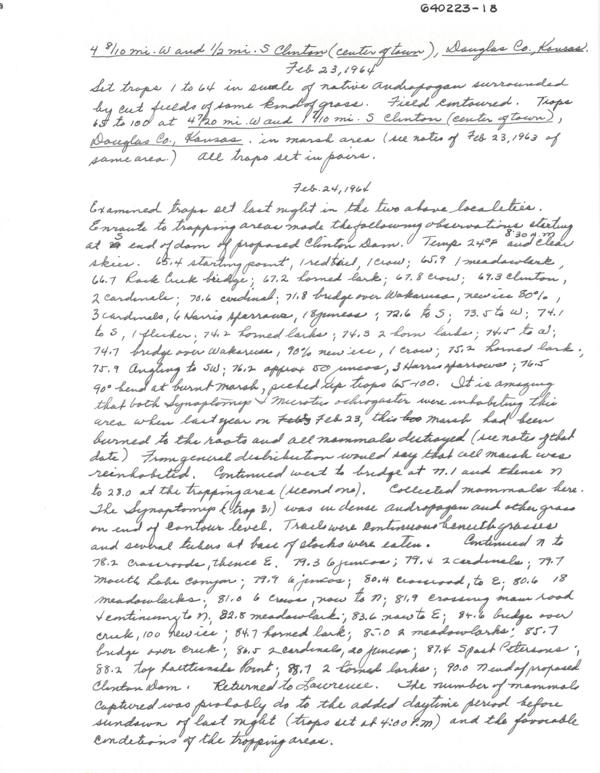 640223-18
4 8/10 mi. W and 1/2 mi. S Clinton (center of town), Douglas Co., Kansas.
Feb 23, 1964
Set traps 1 to 64 in swale of native Andropogan surrounded
by cut fields of some kind of grass. Field contoured. Traps
65 to 100 at 4 7/20 mi. W and 1 9/10 mi. S Clinton (center of town),
Douglas Co., Kansas. in marsh area (see notes of Feb 23, 1963 of
same area.) All traps set in pairs.
Feb. 24, 1964
Examined traps set last night in the two above localeties.
Enroute to trapping areas made the following observations starting
at S end of dam of proposed Clinton Dam. Temp 24°F 8:30 A.M and clear
skies. 65.4 starting point, 1 redtail, 1 crow; 65.9 1 meadowlark,
66.7 Rock Creek bridge; 67.2 horned lark; 67.8 crow; 69.3 Clinton,
2 cardinals; 70.6 cardinal; 71.8 bridge over Wakarusa, new ice 80%,
3 cardinals, 6 Harris sparrows, 18 juncos; 72.6 to S; 73.5 to W; 74.1
to S, 1 flicker; 74.2 horned larks; 74.3 2 horn larks; 74.5 to W;
74.7 bridge over Wakarusa, 90% new ice, 1 crow; 75.2 horned lark;
75.9 Angling to SW; 76.2 approx 50 juncos, 3 Harris sparrows; 76.5
90° bend at burnt marsh, picked up traps 65-100. It is amazing
that both Synaptomys & Microtis ochrogaster were inhabiting this
area when last year on Feb 23, this marsh had been
burned to the roots and all mammals destroyed (see notes of that
date) From general distribution would say that all marsh was
reinhabited. Continued west to bridge at 77.1 and thence N
to 28.0 at the trapping area (second one). Collected mammals here.
The Synaptomys (trap 31) was in dense Andropogan and other grass
on end of contour level. Trails were continuous beneath grasses
and several tubers at base of stocks were eaten. Continued N to
78.2 crossroads, thence E. 79.3 6 juncos; 79.4 2 cardinals; 79.7
Mouth Lake Canyon; 79.9 6 juncos; 80.4 crossroad, to E; 80.6 18
meadowlarks; 81.0 6 crows, now to N; 81.9 crossing main road
& continuing to N, 82.8 meadowlark; 83.6 now to E; 84.6 bridge over
creek, 100 new ice; 84.7 horned lark; 85.0 2 meadowlarks; 85.7
bridge over creek; 86.5 2 cardinals, 20 juncos; 87.4 S past Petersons;
88.2 top Point; 88.7 2 horned larks; 90.0 N end of proposed
Clinton Dam. Returned to Lawrence. The number of mammals
captured was probably do to the added daytime period before
sundown of last night (traps set at 4:00 P.M) and the favorable
condetions of the trapping areas.